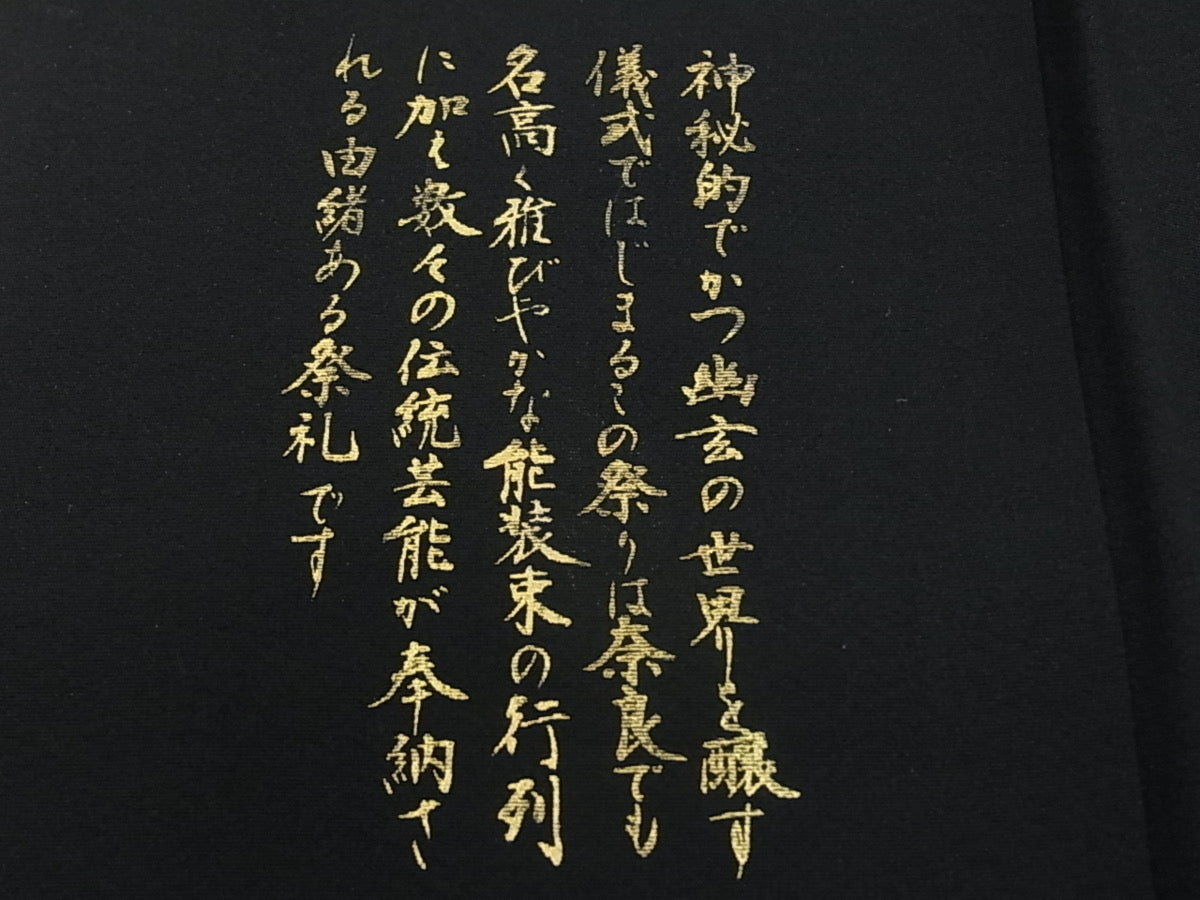 神秘的でかつ幽玄の世界を醸す
儀式ではじまるこの祭りは奈良でも
名高く雅びやかな能装束の行列
に加え数々の伝統芸能が奉納さ
れる由緒ある祭礼です